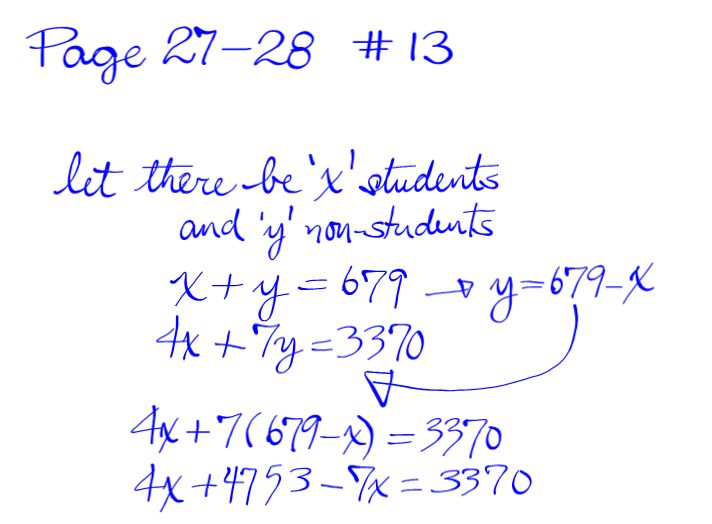 Page 27-28 #13
let there be 'x' students
and 'y' non-students
x + y = 679 → y = 679 - x
4x + 7y = 3370
4x + 7(679 - x) = 3370
4x + 4753 - 7x = 3370